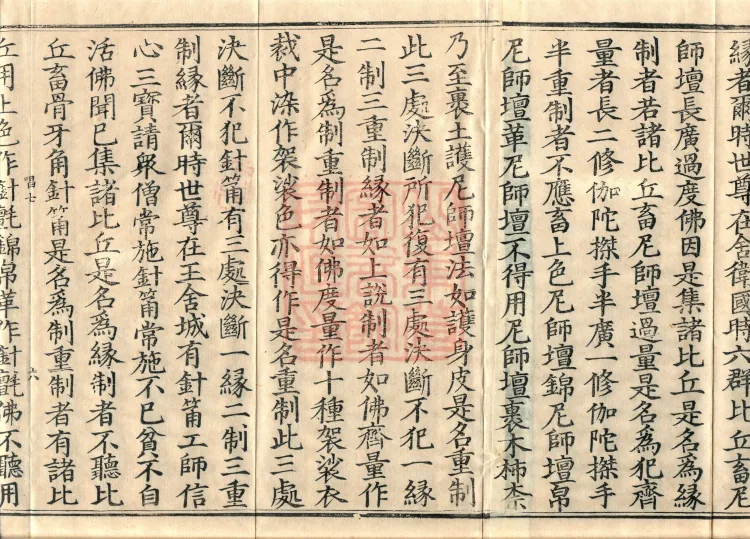 緣者爾時世尊在舍衛國時六群比丘畜尼
師壇長廣過度佛因是集諸比丘是名爲緣
制者若諸比丘畜尼師壇過量是名爲犯齊
量者長二修伽陀搩手半廣一修伽陀搩手
半重制者不應畜上色尼師壇錦尼師壇帛
尼師壇革尼師壇不得用尼師壇裹木柿柰
乃至裹土護尼師壇法如護身皮是名重制
此三處決斷所犯復有三處決斷不犯一緣
二制三重制緣者如上說制者如佛齊量作
是名爲制重制者如佛度量作十種袈裟衣
裁中染作袈裟色亦得作是名重制此三處
決斷不犯針筩有三處決斷一緣二制三重
制緣者爾時世尊在王舍城有針筩工師信
心三寶請眾僧常施針筩常施不已貧不自
活佛聞已集諸比丘是名爲緣制者不聽比
丘畜骨牙角針筩是名爲制重制者有諸比
唱七 六
丘用上色作針氈錦帛革作針氈佛不聽用